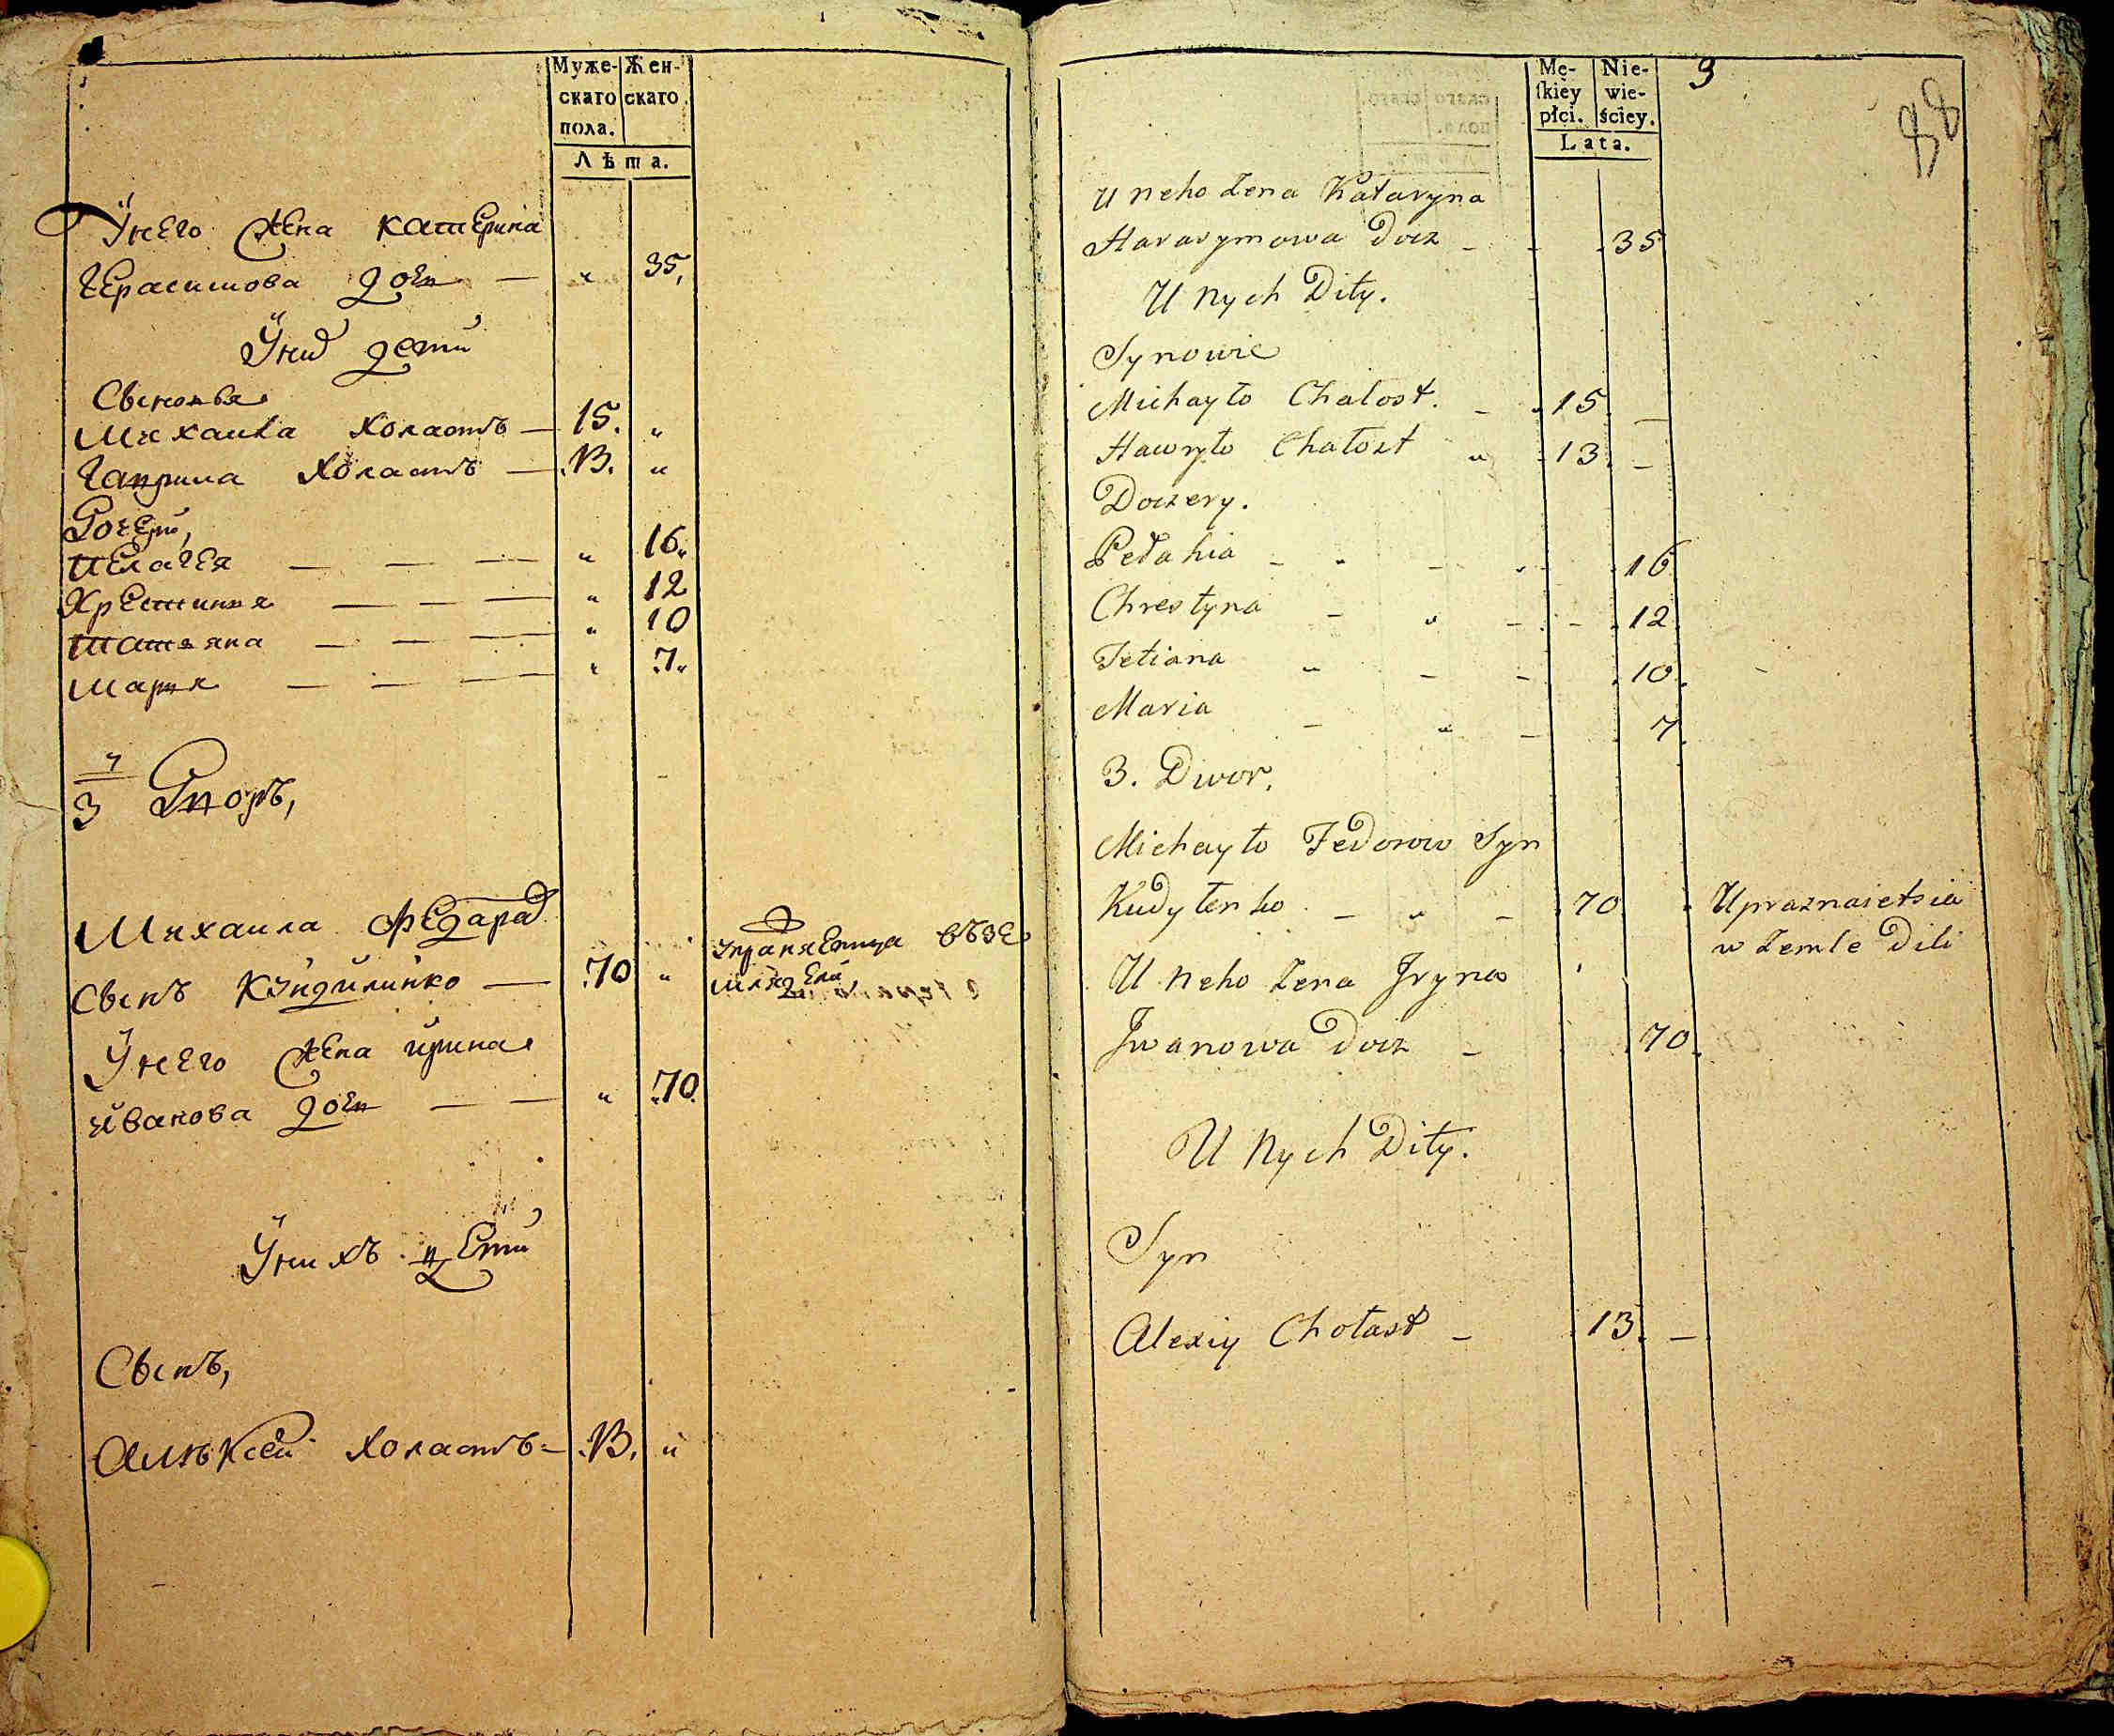 Муже-
скаго
пола.
Жен-
скаго
Лѣта.
Ў него жена катерина
Герасимова дочь — " 35,
Ў них дети
Сыновья
Михаила Холастъ — 15. "
Гаврила Холастъ — .13. "
Дочери,
Пелагея — — — " 16"
Хрестинья — — — " 12
Татьяна — — — " 10
Марья — — — " .7"
7
3 Дворъ,
Михаила Федарав
Сынъ Кундиленко — .70 "
упраняетца въ зе
мли дели
Ў него жена ирина
ивановa дочь — — " .70.
Ў нихъ дети
Сынъ,
Алѣксей Холастъ — .13. "
Mę-
skiéy
płci.
Nie-
wie-
ściey.
Lata.
3
88
U neho Żena Kataryna
Harasymowa docz - - 35
U Nych Dity.
Synowie
Michayło Chałost. - 15. -
Hawryło Chałost " 13. -
Doczery.
Pełahia - " - " 16
Chrestyna - " - - 12
Tetiana " - - 10.
Maria - " - 7.
3. Dwor.
Michayło Fedorow Syn
Kudyłenko - " - 70
Upraznaietsia
w Zemle Dili
U Neho Żena Jryna
Jwanowa docz - 70.
U Nych Dity.
Syn
Alexiy Chołast - 13. -